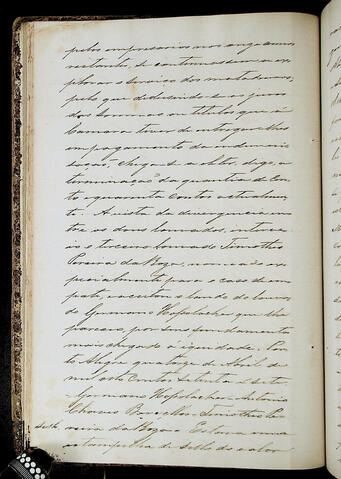 pelos empresarios nos onze annos
restantes, se continuassem a ex
plorar o serviço dos matadouros,
pelo que deduzindo-se os juros
dos bonus ou titulos que a
Camara tiver de entregar-lhes
em pagamento da indemni
sação, chega-se a obter, digo, a
terminação da quantia de cen
to e quarenta contos actualmen
te. A vista da divergencia en
tre os dous louvados, interve
io o terceiro louvado Timotheo
Pereira da Roza, nomeado es
pecialmente para o caso de em
pate, e acceitou o laudo do louva
do Germano Hasslocher que lhe
pareceu, por seus fundamentos
mais chegado á equidade. Por
to Alegre quatorze de Abril de
mil oito centos setenta e sete.
Germano Hasslocher. Antonio
Chaves Barcellos. Timotheo Pe
reira da Roza. Estava uma
estampilha de sello do valor